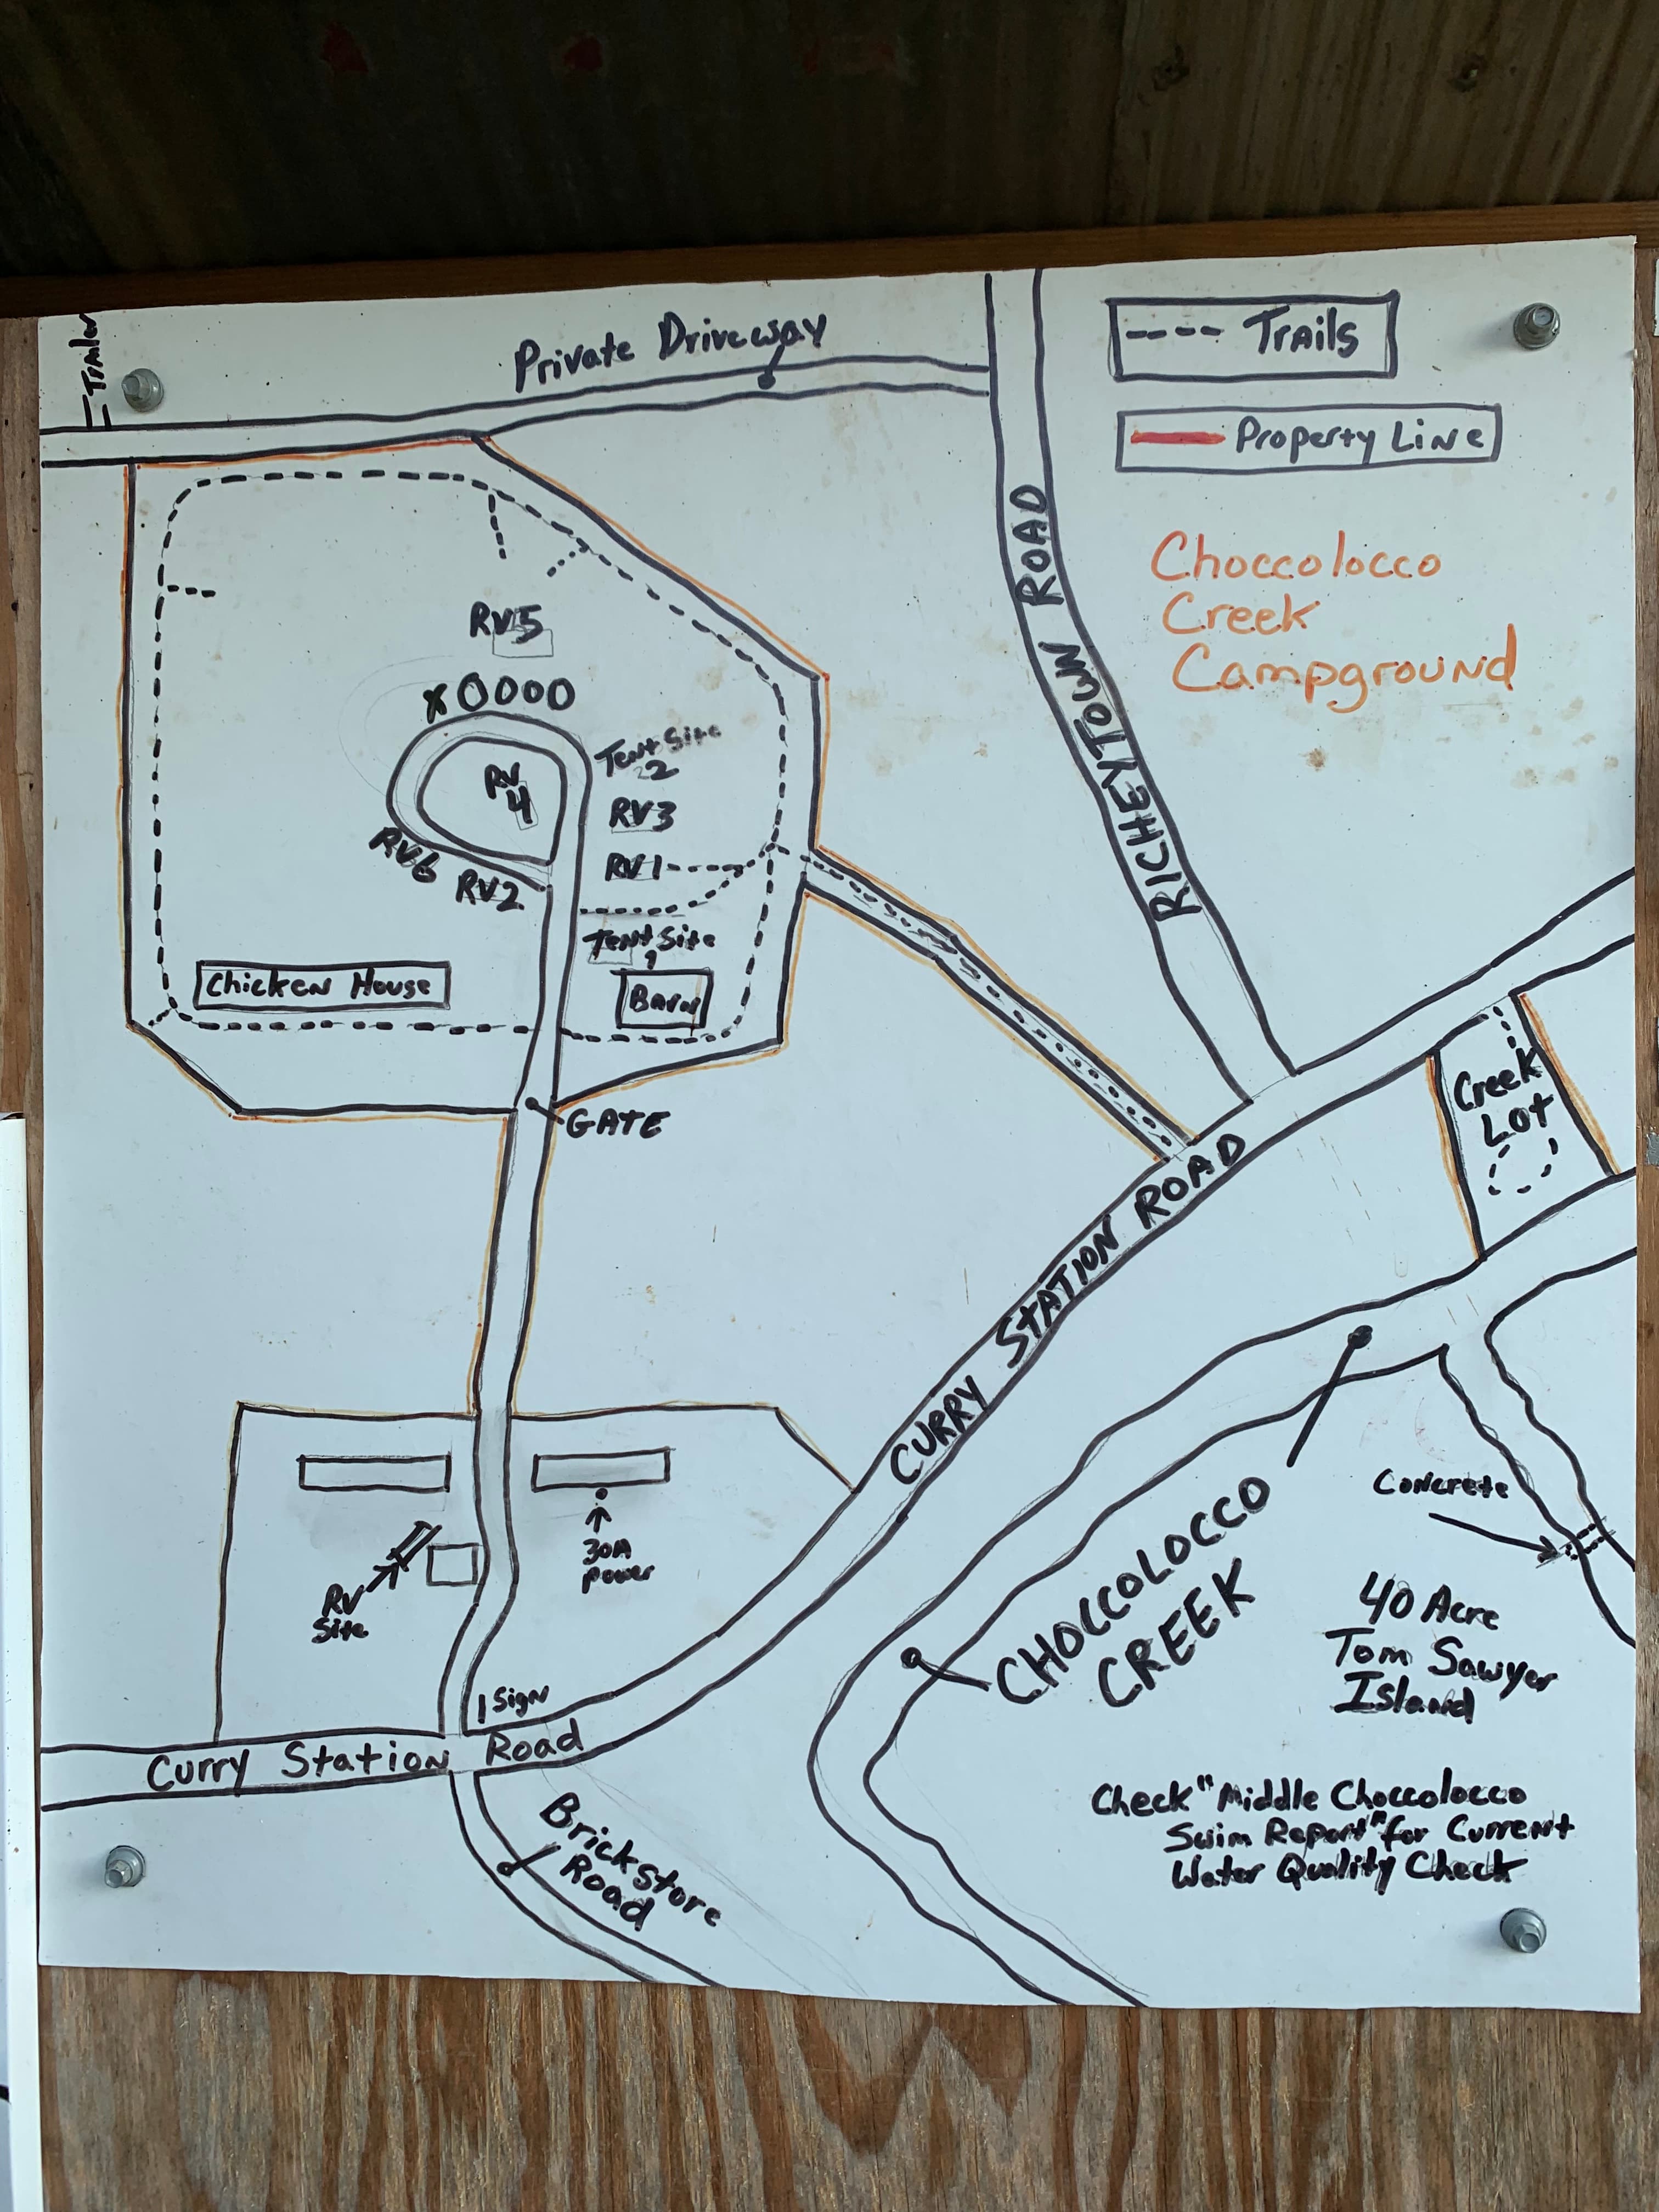 Trailer
Private Driveway
Trails
Property Line
RICHEYTOWN ROAD
Choccolocco
Creek
Campground
RV5
X0000
Tent Site
2
RV
4
RV3
RV6
RV2
RV1
Tent Site
1
Chicken House
Barn
GATE
Creek
Lot
CURRY STATION ROAD
30A
Power
RV
Site
Sign
Curry Station Road
Brickstore
Road
CHOCCOLOCCO
CREEK
Concrete
40 Acre
Tom Sawyer
Island
Check "Middle Choccolocco
Swim Report" for Current
Water Quality Check